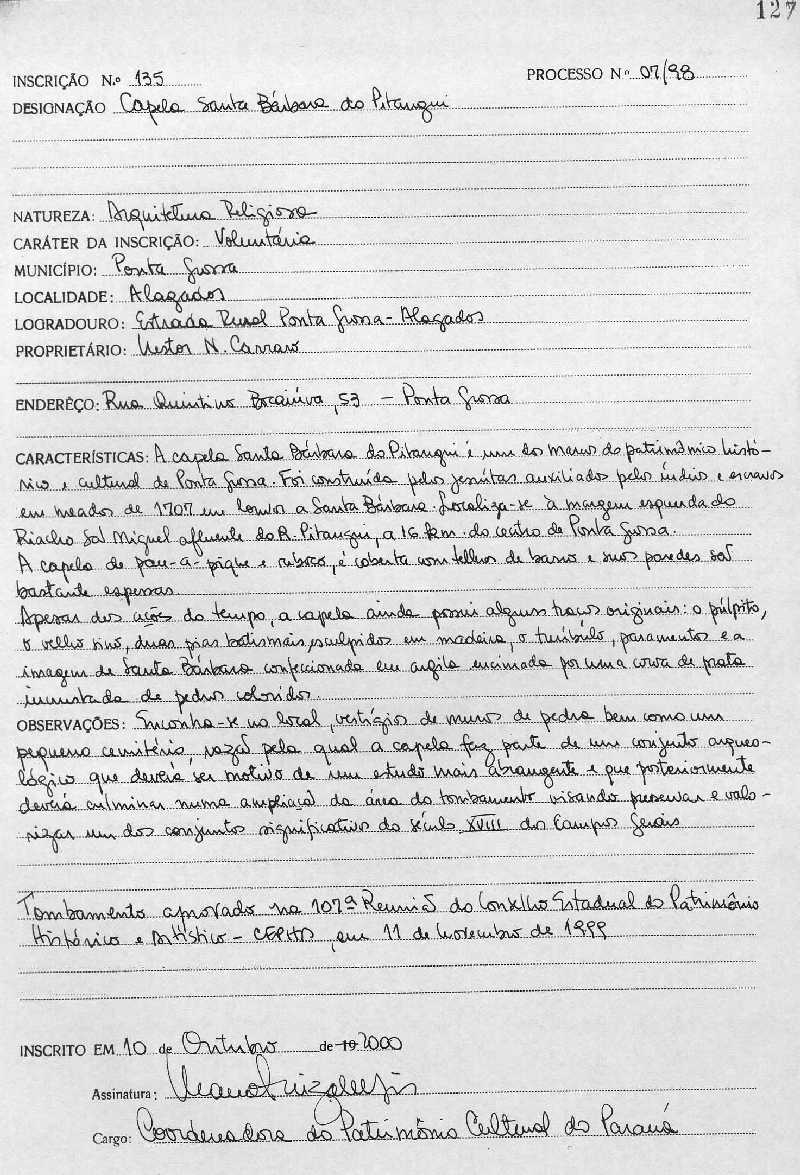 127
INSCRIÇÃO N.º 135
PROCESSO Nº 07/98
DESIGNAÇÃO Capela Santa Bárbara do Pitangui
NATUREZA: Arquitetura Religiosa
CARÁTER DA INSCRIÇÃO: Voluntária
MUNICÍPIO: Ponta Grossa
LOCALIDADE: Alagados
LOGRADOURO: Estrada Rural Ponta Grossa - Alagados
PROPRIETÁRIO: Nestor N. Carraro
ENDERÊÇO: Rua Quintino Bocaiúva, 53 - Ponta Grossa
CARACTERÍSTICAS: A capela Santa Bárbara do Pitangui é um dos marcos do patrimônico histó-
rico e cultural de Ponta Grossa. Foi construída pelos jesuítas auxiliados pelos índios e escravos
em meados de 1707 em honra a Santa Bárbara. Localiza-se à margem esquerda do
Riacho São Miguel afluente do R. Pitangui, a 16 km. do centro de Ponta Grossa.
A capela de pau-a-pique e reboco, é coberta com telhas de barro e suas paredes são
bastante espessas
Apesar das ações do tempo, a capela ainda possui alguns traços originais: o púlpito,
o velho sino, duas pias batismais, esculpidos em madeira, o turíbulo, paramentos e a
imagem de Santa Bárbara confeccionada em argila encimada por uma coroa de prata
incrustada de pedras coloridas.
OBSERVAÇÕES: Encontra-se no local, vestígios de muros de pedra bem como um
pequeno cemitério, razão pela qual a capela faz parte de um conjunto arqueo-
lógico que deverá ser motivo de um estudo mais abrangente e que posteriormente
deverá culminar numa ampliação da área do tombamento visando preservar e valo-
rizar um dos conjuntos significativos do século XVIII dos Campos Gerais
Tombamento aprovado na 107ª Reunião do Conselho Estadual do Patrimônio
Histórico e Artístico - CEPHA, em 11 de novembro de 1999
INSCRITO EM 10 de Outubro de 19 2000
Assinatura:
Cargo: Coordenadora do Patrimônio Cultural do Paraná